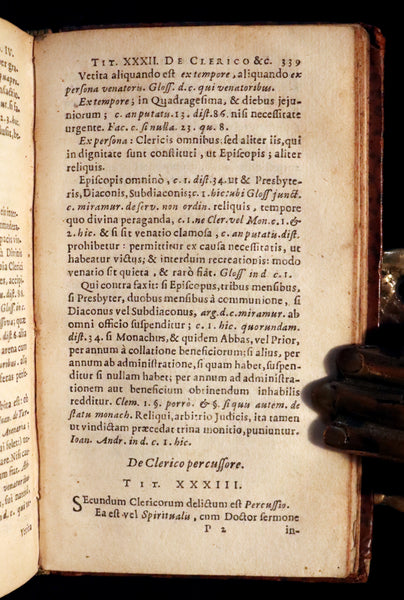 TIT. XXXII. DE CLERICO &c. 339
Vetita aliquando est ex tempore, aliquando ex
persona venatoru. Gloss. d. c. qui venatoribus.
Ex tempore; in Quadragesima, & diebus jeju-
niorum; c. an putatu. 13. dist. 86. nisi necessitate
urgente. Fac. c. si nulla. 23. qu. 8.
Ex persona: Clericis omnibus: sed aliter iis, qui
in dignitate sunt constituti, ut Episcopis; aliter
reliquis.
Episcopis omninò, c. 1. dist. 34. ut & Presbyte-
ris, Diaconis, Subdiaconis; c. 1. hic: ubi Gloss junct.
c. miramur. de serv. non ordin. reliquis, tempore
quo divina peraganda, c. 1. ne Cler. vel Mon. c. 1. &
2. hic. & si sit venatio clamosa, c. an putatu. dist.
prohibetur: permittitur ex causa necessitatis, ut
habeatur victus; & interdum recreationis: modo
venatio sit quieta, & rarò fiat. Gloss in d c. 1.
Qui contra faxit: si Episcopus, tribus mensibus,
si Presbyter, duobus mensibus à communione, si
Diaconus vel Subdiaconus, arg. d. c. miramur. ab
omni officio suspenditur; c. 1. hic. quorundam.
dist. 34. si Monachus, & quidem Abbas, vel Prior,
per annum à collatione beneficiorum: si alius, per
annum ab administratione, si quam habet, suspen-
ditur: si nullam habet; per annum ad administra-
tionem aut beneficium obtinendum inhabilis
redditur. Clem. 1. §. porrò. & §. si quu autem. de
statu monach. Reliqui, arbitrio Judicis, ita tamen
ut vindictam præcedat trina monitio, puniuntur.
Ioan. Andr. in d. c. 1. hic.
De Clerico percussore.
TIT. XXXIII.
Secundum Clericorum delictum est Percussio.
Ea est vel Spiritualis, cum Doctor sermone
P 2 in-